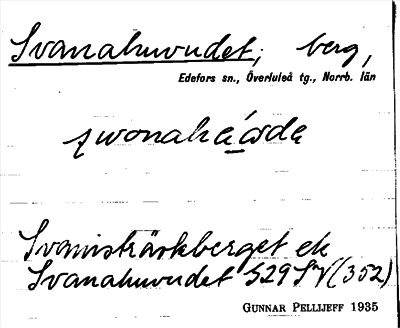 Svanahuvudet, berg,
Edefors sn., Överluleå tg., Norrb. län
Svanisträskberget ek
Svanahuvudet S29SV(352)
GUNNAR PELLIJEFF 1935